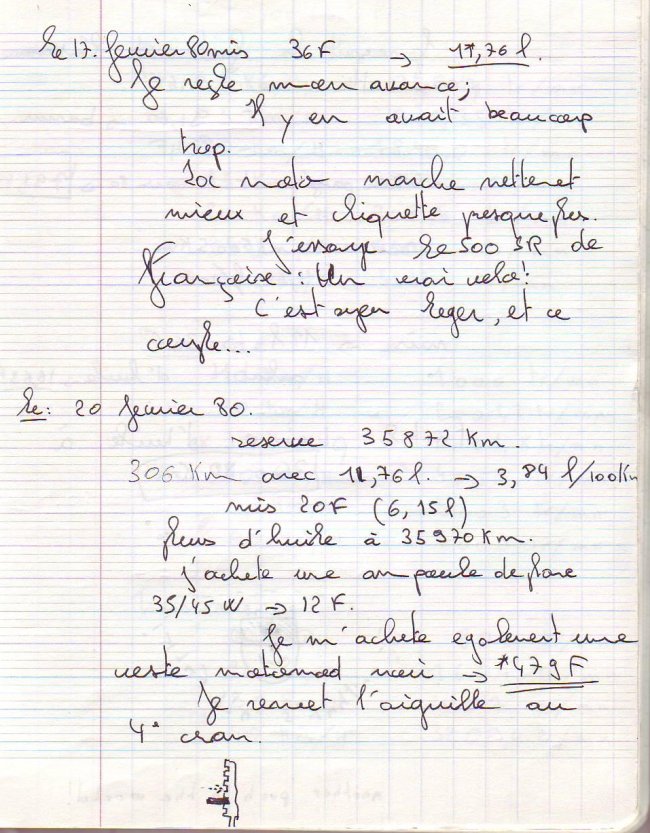 Le 17. fevrier 80 mis 36F → 11,76 l.
Je regle mon avance;
Il y en avait beaucoup
trop.
La moto marche nettemet
mieux et cliquette presque plus.
J'essaye le 500 SR de
Françoise : Un vrai velo!
C'est super leger, et ce
couple...
Le: 20 fevrier 80.
reserve 35872 Km.
306 Km avec 11,76 l. → 3,84 l/100Km
mis 20F (6,15 l)
plus d'huile à 35970 Km.
j'achete une ampoule de phare
35/45 W → 12 F.
Je m'achete egalement une
veste motomod noir → *479F
Je remet l'aiguille au
4° cran.